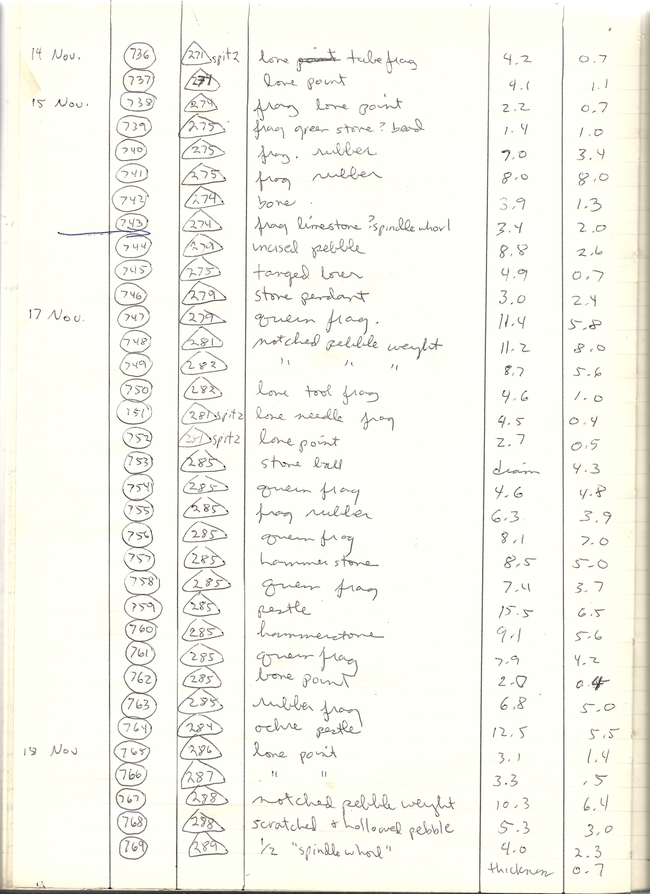 14 Nov. 736 271 spit2 bone tube frag 4.2 0.7
737 bone point 4.1 1.1
15 Nov. 738 274 frag bone point 2.2 0.7
739 275 frag green stone? bead 1.4 1.0
740 275 frag. rubber 7.0 3.4
741 275 frag rubber 8.0 8.0
742 274 bone. 3.9 1.3
743 274 frag limestone ?spindle whorl 3.4 2.0
744 279 incised pebble 8.8 2.6
745 275 tanged 4.9 0.7
746 279 stone pendant 3.0 2.4
17 Nov. 747 279 quern frag. 11.4 5.8
748 281 notched pebble weight 11.2 8.0
749 282 " " " 8.7 5.6
750 282 bone tool frag 4.6 1.0
751 281 spit2 bone needle frag 4.5 0.4
752 281 spit2 bone point 2.7 0.5
753 285 stone ball diam 4.3
754 285 quern frag 4.6 4.8
755 285 frag rubber 6.3 3.9
756 285 quern frag 8.1 7.0
757 285 hammerstone 8.5 5.0
758 285 quern frag 7.4 3.7
759 285 pestle 15.5 6.5
760 285 hammerstone 9.1 5.6
761 285 quern frag 7.9 4.2
762 285 bone point 2.0 0.4
763 285 rubber frag 6.8 5.0
764 284 ochre pestle 12.5 5.5
18 Nov 765 286 bone point 3.1 1.4
766 287 " " 3.3 .5
767 288 notched pebble weight 10.3 6.4
768 288 scratched & hollowed pebble 5.3 3.0
769 289 1/2 "spindle whorl" 4.0 2.3
thickness 0.7